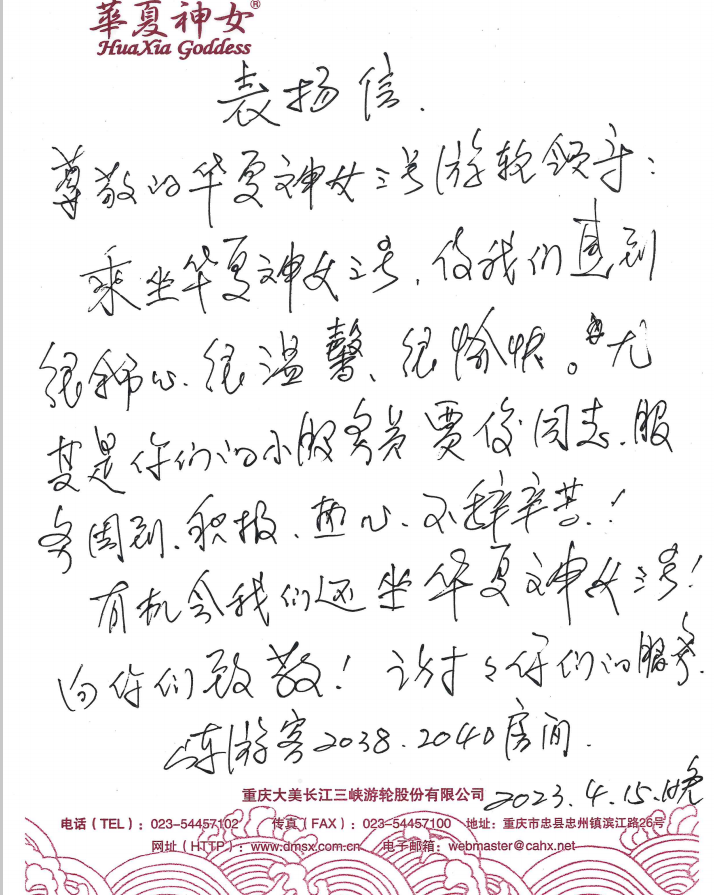 華夏神女®
HuaXia Goddess
表扬信.
尊敬的华夏神女三号游轮领导：
乘坐华夏神女三号，使我们感到
很称心、很温馨、很愉快。尤
其是你们的小服务员贾俊同志、服
务周到、积极、热心、不辞辛苦！
有机会我们还坐华夏神女三号！
向你们致敬！谢谢你们的服务.
游客2038.2040房间.
2023.4.15.晚
重庆大美长江三峡游轮股份有限公司
电话（TEL）：023-54457102 传真（FAX）：023-54457100 地址：重庆市忠县忠州镇滨江路26号
网址（HTTP）：www.dmsx.com.cn 电子邮箱：webmaster@cahx.net